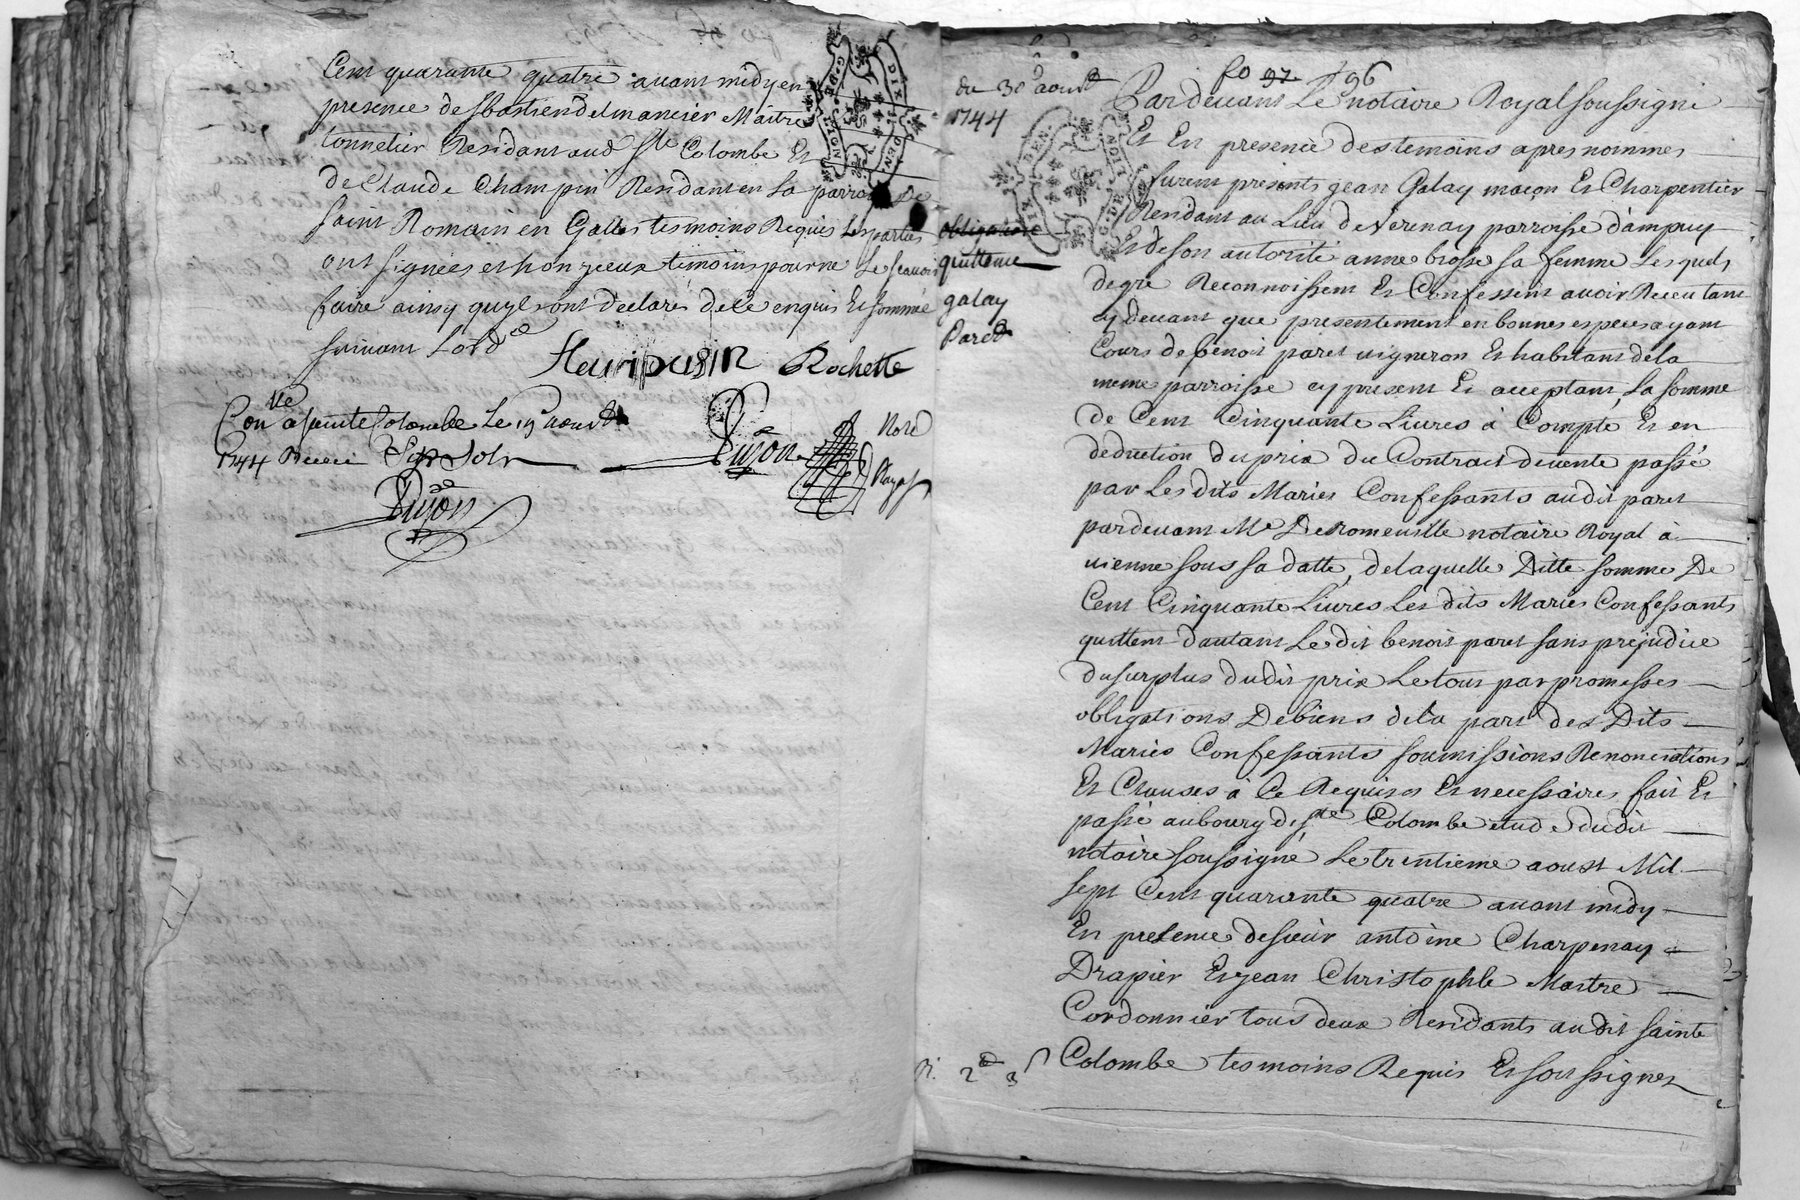 Cent quarante quatre avant midy en
presence de sbastien delmancier Maitre
tonnelier Residant aud Ste Colombe Et
de Claude Champin Residant en la parroisse De
saint Romain en Galles tesmoins Requis Les parties
ont signées et non yceux temoins pour ne Le scavoir
faire ainsy quyls ont declarés de ce enquis Et sommé
suivant Lord
fleuri pasin Rochette
Con lle a sainte Colombe Le 19 aoust
1744 Receu Sols
Dujon
Nore
Royal
Dujon
fo 97 196
du 30 aoust
1744
obligation
quittance
galay
Paret
Pardevant Le notaire Royal soussigné
Et En presence des temoins apres nommes
furent presents jean Galay maçon Et Charpentier
Residant au Lieu de Verenay parroisse d'ampuy
Et de son autorité anne brosse sa femme Lesquels
de gré Reconnoissent Et Confessent avoir Receu tant
cy devant que presentement en bonnes especes ayant
Cours de benoit paret vigneron Et habitant de la
meme parroisse cy present Et acceptant La somme
de Cent Cinquante Livres à Compte Et en
deduction du prix du Contrat de vente passé
par Les dits Mariés Confessants audit paret
pardevant Me Deromeville notaire Royal à
vienne sous sa datte, de laquelle Ditte somme De
Cent Cinquante Livres Les dits Mariés Confessants
quittent d'autant Le dit benoit paret sans prejudice
du surplus dudit prix Le tout par promesses
obligations De biens de la part des Dits
Mariés Confessants soumissions Renonciations
Et Clauses à Ce Requises Et necessaires fait Et
passé au bourg de ste Colombe etude dudit
notaire soussigné Le trentieme aoust Mil
sept Cent quarante quatre avant midy
En presence de sieur antoine Charpenay
Drapier Et jean Christophle Maitre
Cordonnier tous deux Residants au dit sainte
Colombe tesmoins Requis Et soussignez